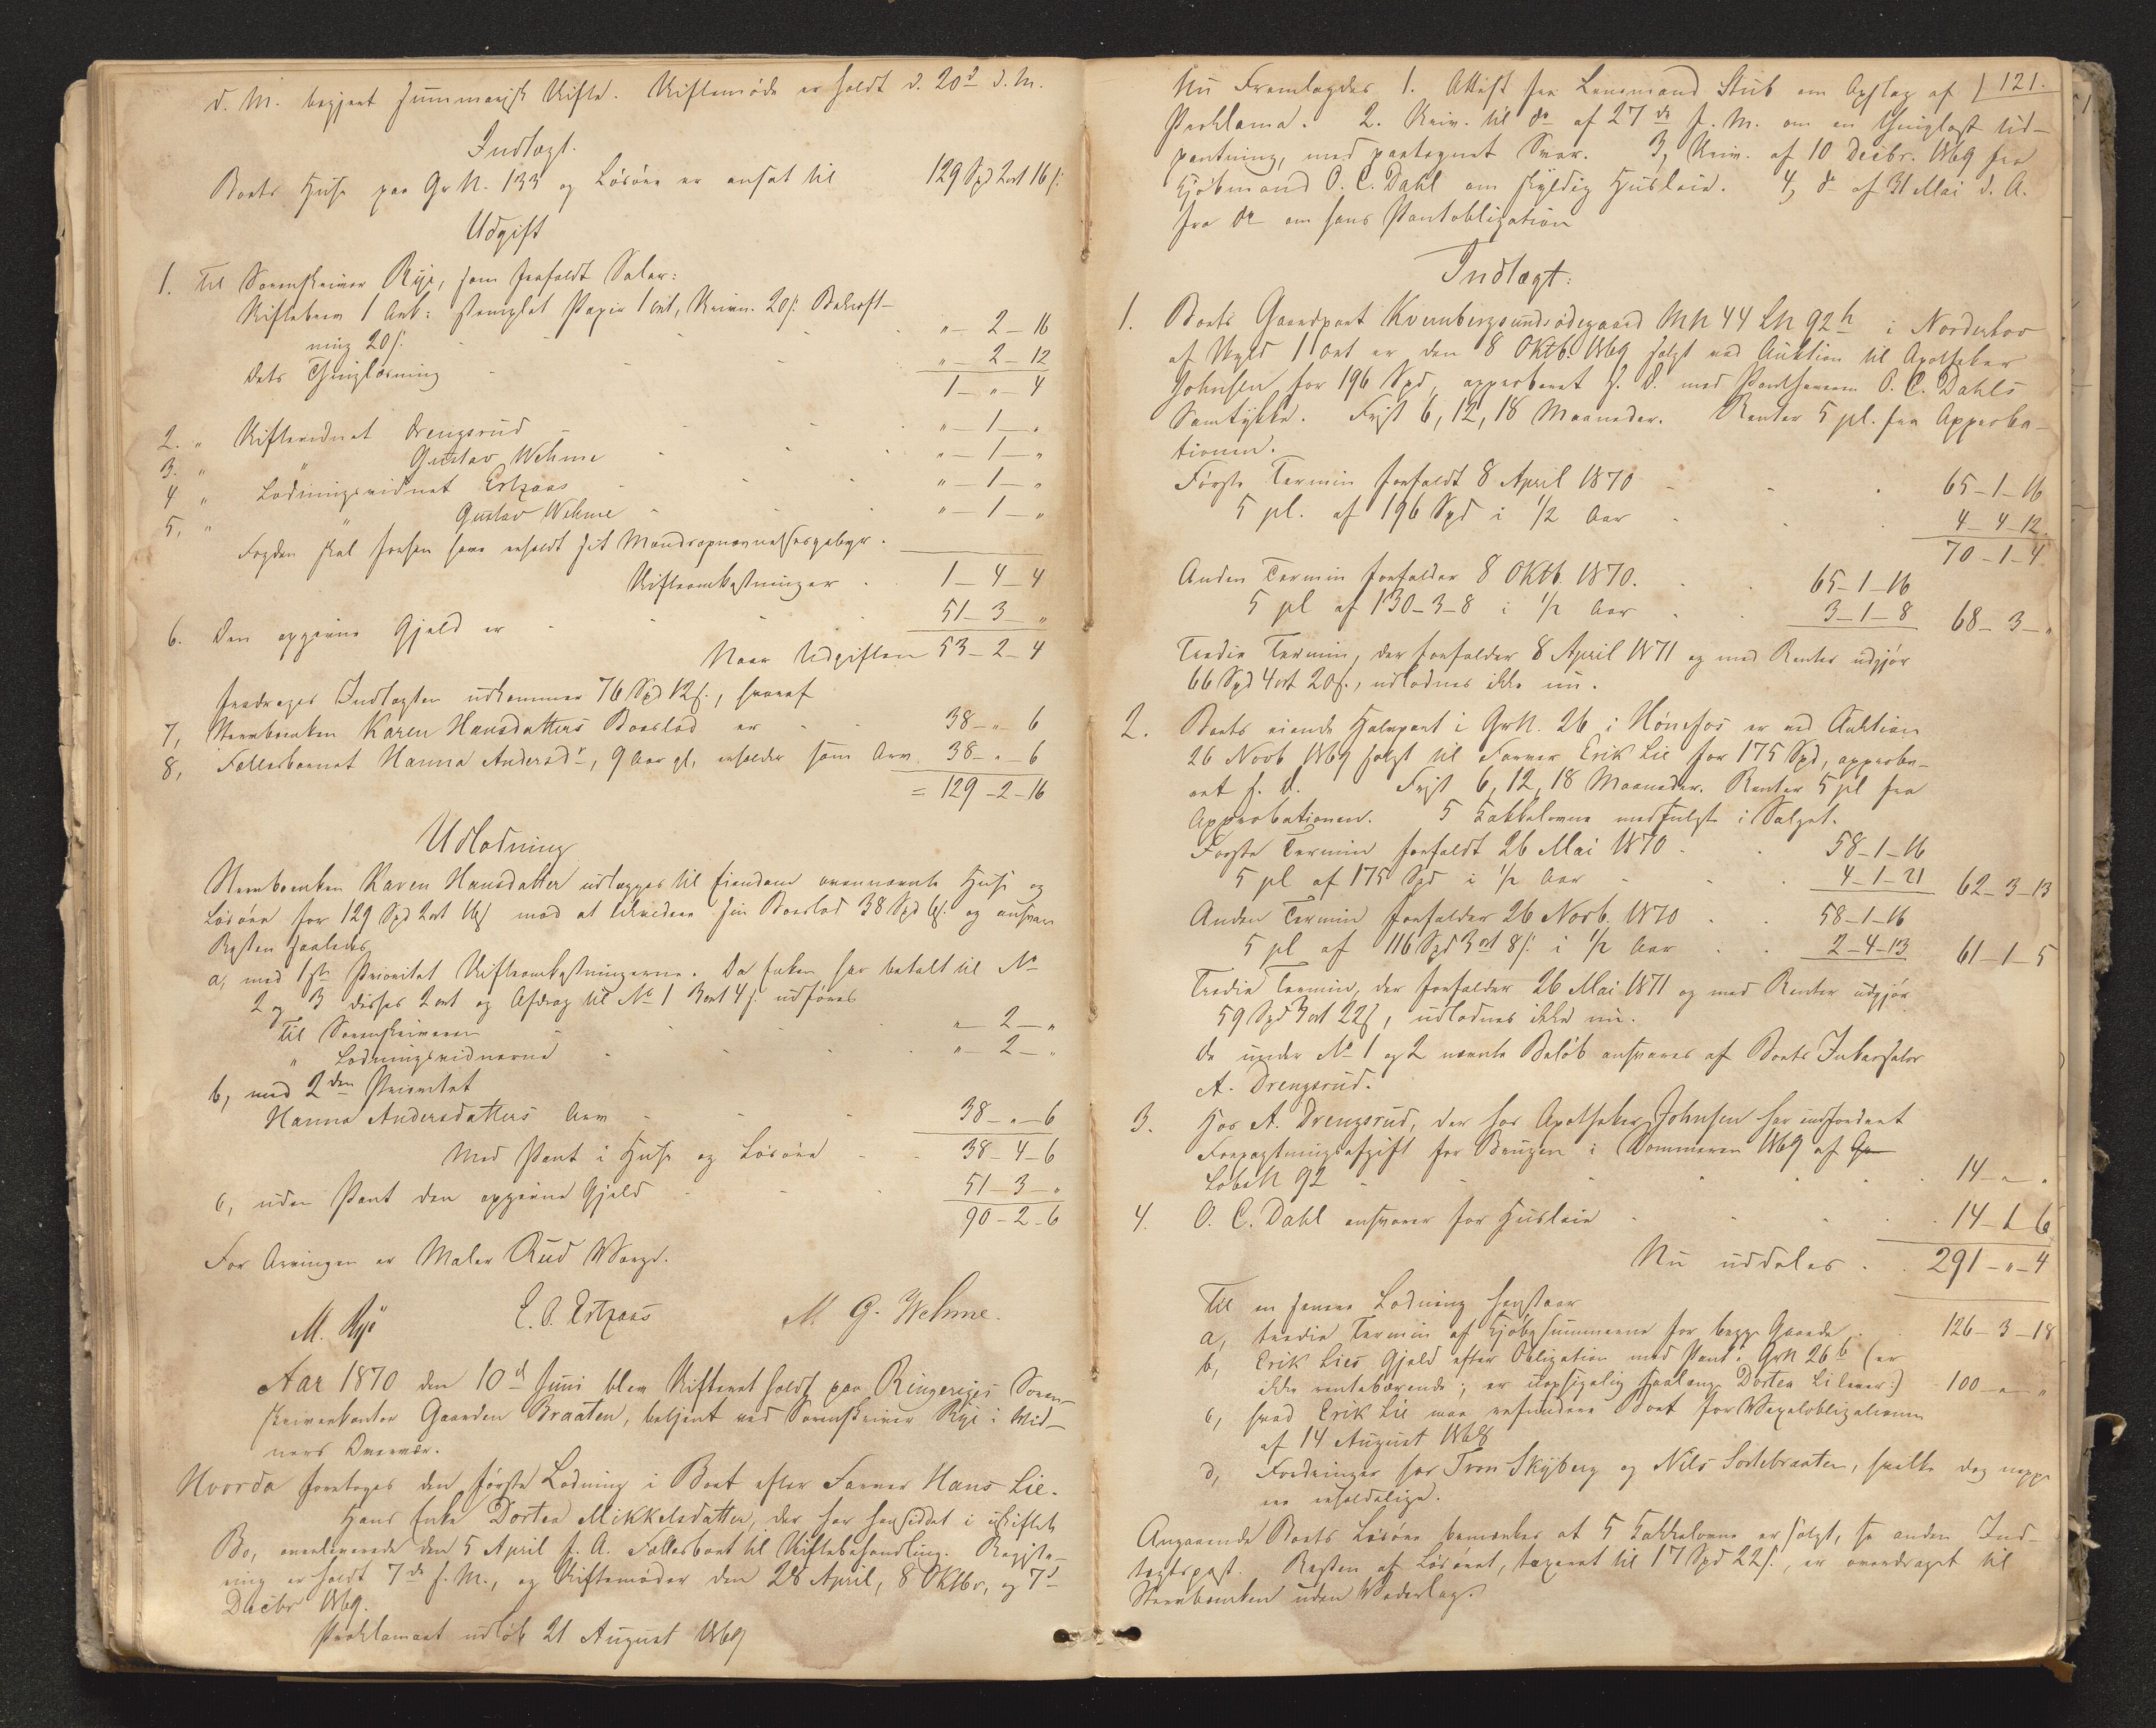 d. M. begjært summarisk Skifte. Skiftemøde er holdt d. 20d d. M.
Indtægt.
Boets Huse paa Gr N. 133 og Løsøre er ansat til 129 Spd 2 ort 16 s:
Udgift
1. Til Sorenskriver Rye, som forfaldt Salær:
Skiftebrev 1 Ark: stemplet Papir 1 ort, Skrivn. 20 s. Bekræft-
ning 20 s. " - 2 - 16
Dets Thinglæsning " - 2 - 12
1 - " - 4
2. " Skiftevidnet Drengsrud " - 1 - "
3. " " Gustav Wehme " - 1 - "
4 " Lodningsvidnet Ertzaas " - 1 - "
5, " " Gustav Wehme " - 1 - "
Fogden skal forhen have erholdt sit Mandsopnævnelsesgebyr.
Skifteomkostninger 1 - 4 - 4
6. Den opgivne Gjæld er 51 - 3 - "
Naar Udgiften 53 - 2 - 4
fradrages Indtægten udkommer 76 Spd 12 s., hvoraf
7, Stervboenken Karen Hansdatters Boeslod er 38 - " - 6
8, Fællesbarnet Hanna Andersdr, 9 Aar gl, erholder som Arv 38 - " - 6
= 129 - 2 - 16
Udlodning
Stervboenken Karen Hansdatter udlægges til Eiendom ovennævnte Huse og
Løsøre for 129 Spd 2 ort 16 s mod at likvidere sin Boeslod 38 Spd 6 s. og ansvare
Resten saaledes
a, med 1ste Prioritet Skifteomkostningerne. Da Enken har betalt til No
2 og 3 disses 2 ort og Afdrag til No 1 3 ort 4 s. udføres
Til Sorenskriveren " - 2 - "
" Lodningsvidnerne " - 2 - "
b, med 2den Prioritet
Hanna Andersdatters Arv 38 - " - 6
Med Pant i Huse og Løsøre 38 - 4 - 6
c, uden Pant den opgivne Gjæld 51 - 3 - "
90 - 2 - 6
For Arvingen er Maler Rud Værge.
M. Rye E. O. Ertzaas M. G. Wehme.
Aar 1870 den 10d Juni blev Skifteret holdt paa Ringeriges Soren-
skriverkontor Gaarden Braaten, betjent ved Sorenskriver Rye i Vid-
ners Overvær.
Hvorda foretoges den første Lodning i Boet efter Farver Hans Lie.
Hans Enke Dortea Mikkelsdatter, der har hensiddet i uskiftet
Bo, overleverede den 5 April f. A. Fællesboet til Skiftebehandling. Registe-
ring er holdt 7de s. M., og Skiftemøder den 28 April, 8 Oktbr, og 7d
Decbr 1869.
Proklamaet udløb 21 August 1869
121.
Nu Fremlagdes 1. Attest fra Lensmand Stub om Opslag af
Proklama. 2. Skriv. til do af 27de f. M. om en thinglæst Ud-
pantning, med paategnet Svar. 3, Skriv. af 10 Decbr. 1869 fra
Kjøbmand O. C. Dahl om skyldig Husleie. 4, do af 31 Mai d. A.
fra do om hans Pantobligation
Indtægt:
1. Boets Gaardpart Kvernbergsundsødegaard MN 44 LN 92h i Norderhov
af Skyld 1 ort er den 8 Oktb. 1869 solgt ved Auktion til Apotheker
Johnsen for 196 Spd, approberet s. D. med Panthaveren O. C. Dahls
Samtykke. Frist 6, 12, 18 Maaneder. Renter 5 pCt. fra Approba-
tionen.
Første Termin forfaldt 8 April 1870 65 - 1 - 16
5 pCt. af 196 Spd i 1/2 Aar 4 - 4 - 12.
70 - 1 - 4
Anden Termin forfalder 8 Oktb. 1870. 65 - 1 - 16
5 pCt af 130 - 3 - 8 i 1/2 Aar 3 - 1 - 8 68 - 3 - "
Tredie Termin, der forfalder 8 April 1871 og med Renter udgjør
66 Spd 4 ort 20 s., udloddes ikke nu.
2. Boets eiende Halvpart i GrN. 26 i Hønefos er ved Auktion
26 Novb 1869 solgt til Farver Erik Lie for 175 Spd, approbe-
ret s. D. Frist 6, 12, 18 Maaneder. Renter 5 pCt fra
Approbationen. 5 Kakkelovne medfulgte i Salget.
Første Termin forfaldt 26 Mai 1870 58 - 1 - 16
5 pCt af 175 Spd i 1/2 Aar 4 - 1 - 21 62 - 3 - 13
Anden Termin forfalder 26 Novb. 1870 58 - 1 - 16
5 pCt af 116 Spd 3 ort 8 s. i 1/2 Aar 2 - 4 - 13 61 - 1 - 5
Tredie Termin, der forfalder 26 Mai 1871 og med Renter udgjør
59 Spd 3 ort 22 s, udloddes ikke nu.
De under No 1 og 2 nævnte Beløb ansvares af Boets Inkassator
A. Drengsrud.
3. Hos A. Drengsrud, der hos Apotheker Johnsen har indfordret
Forpagtningsafgift for Brugen i Sommeren 1869 af
LøbeN 92 14 - " - "
4. O. C. Dahl ansvarer for Husleie 14 - 1 - 6
Nu uddeles 291 - " - 4
Til en senere Lodning henstaar
a, tredie Termin af Kjøbesummerne for begge Gaarde 126 - 3 - 18
b, Erik Lies Gjæld efter Obligation med Pant i GrN 26b (er
ikke rentebærende; er uopsigelig saalænge Dortea Li lever:) 100 - " - "
c, hvad Erik Lie maa refundere Boet for Vexelobligationen
af 14 August 1868
d, Fordringer hos Tron Skyberg og Nils Sortebraaten, hvilke dog neppe
ere erholdelige.
Angaaende Boets Løsøre bemærkes at 5 Kakkelovne er solgt, se anden Ind-
tægtspost. Resten af Løsøret, taxeret til 17 Spd 22 s., er overdraget til
Stervboenken uden Vederlag.